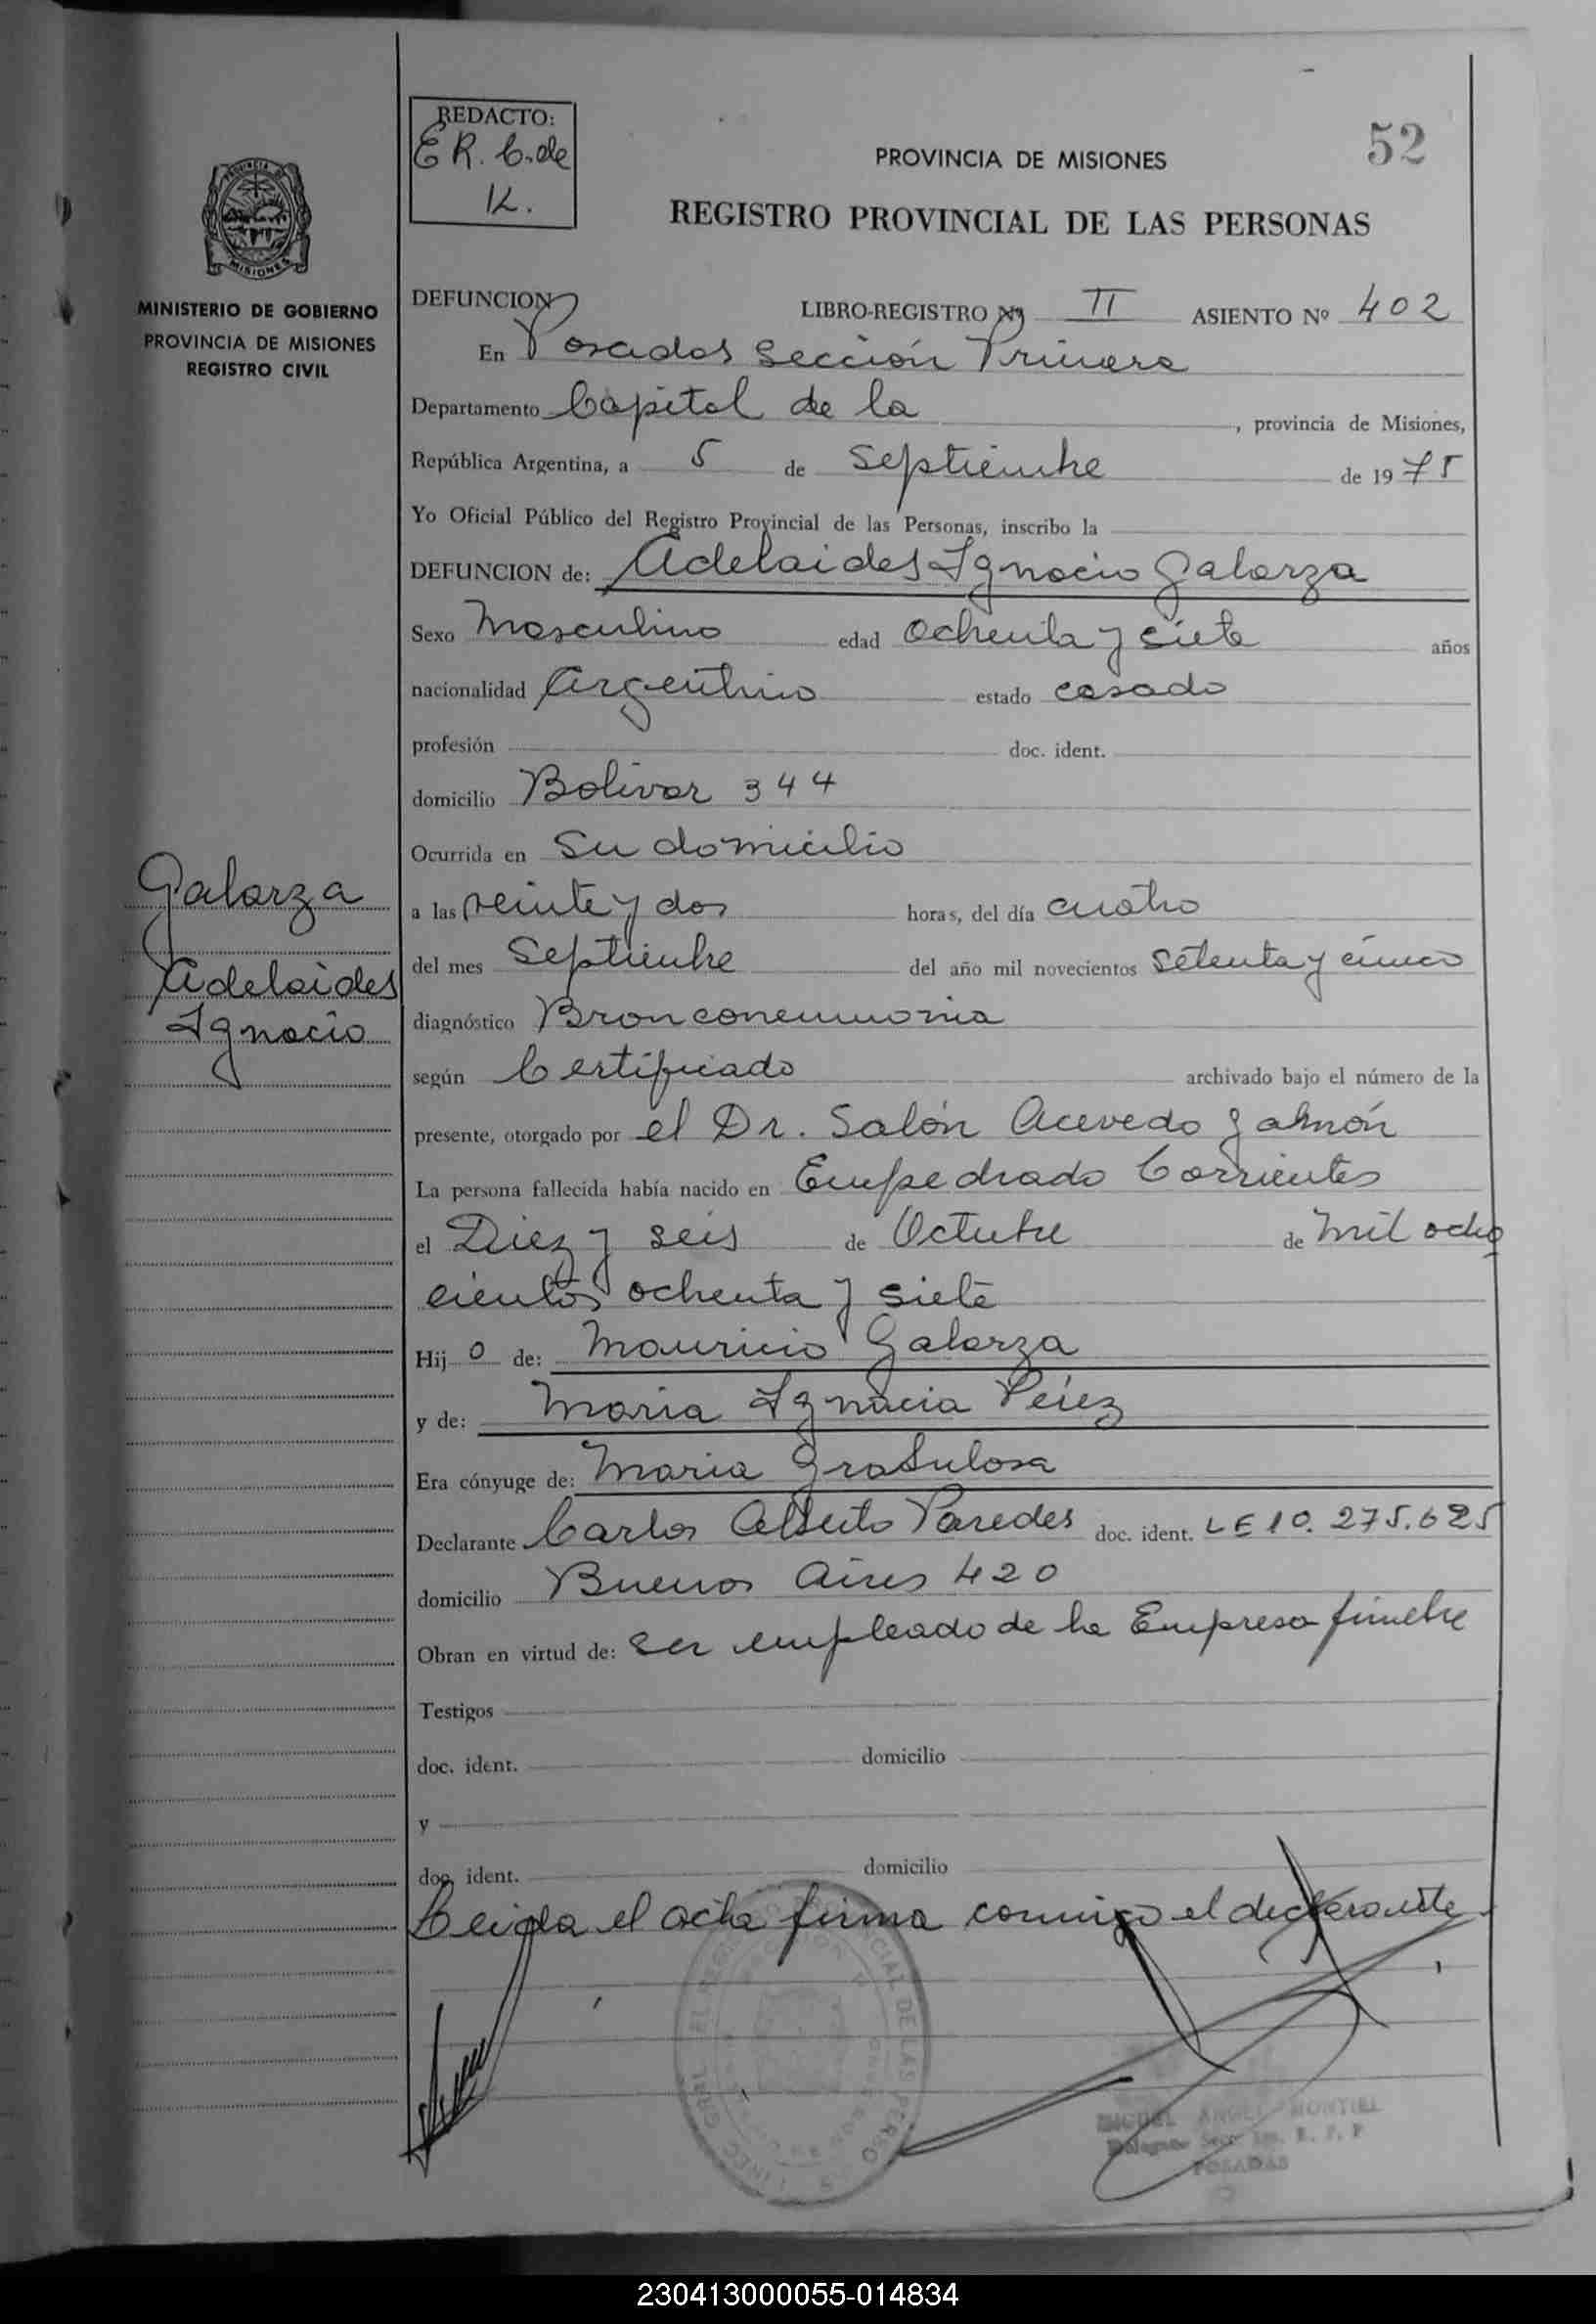 REDACTO:
E R. C. de
K.
52
PROVINCIA DE MISIONES
REGISTRO PROVINCIAL DE LAS PERSONAS
PROVINCIA DE
MISIONES
MINISTERIO DE GOBIERNO
PROVINCIA DE MISIONES
REGISTRO CIVIL
DEFUNCION
LIBRO-REGISTRO Nº II ASIENTO Nº 402
En Posadas Sección Primera
Departamento Capital de la , provincia de Misiones,
República Argentina, a 5 de Septiembre de 1975
Yo Oficial Público del Registro Provincial de las Personas, inscribo la
DEFUNCION de: Adelaides Ignacio Galarza
Sexo Masculino edad Ochenta y siete años
nacionalidad Argentino estado casado
profesión doc. ident.
domicilio Bolivar 344
Ocurrida en Su domicilio
Galarza
Adelaides
Ignacio
a las veinte y dos horas, del día cuatro
del mes Septiembre del año mil novecientos setenta y cinco
diagnóstico Bronconeumonia
según Certificado archivado bajo el número de la
presente, otorgado por el Dr. Salón Acevedo
La persona fallecida había nacido en Empedrado Corrientes
el Diez y seis de Octubre de mil ocho
cientos ochenta y siete
Hijo de: Mauricio Galarza
y de: Maria Ignacia Pérez
Era cónyuge de: Maria
Declarante Carlos Alberto Paredes doc. ident. LE 10.275.625
domicilio Buenos Aires 420
Obran en virtud de: ser empleado de la Empresa fúnebre
Testigos
doc. ident. domicilio
y
doc. ident. domicilio
Leida el acta firma conmigo el declarante
MIGUEL ANGEL MONTIEL
POSADAS
230413000055-014834